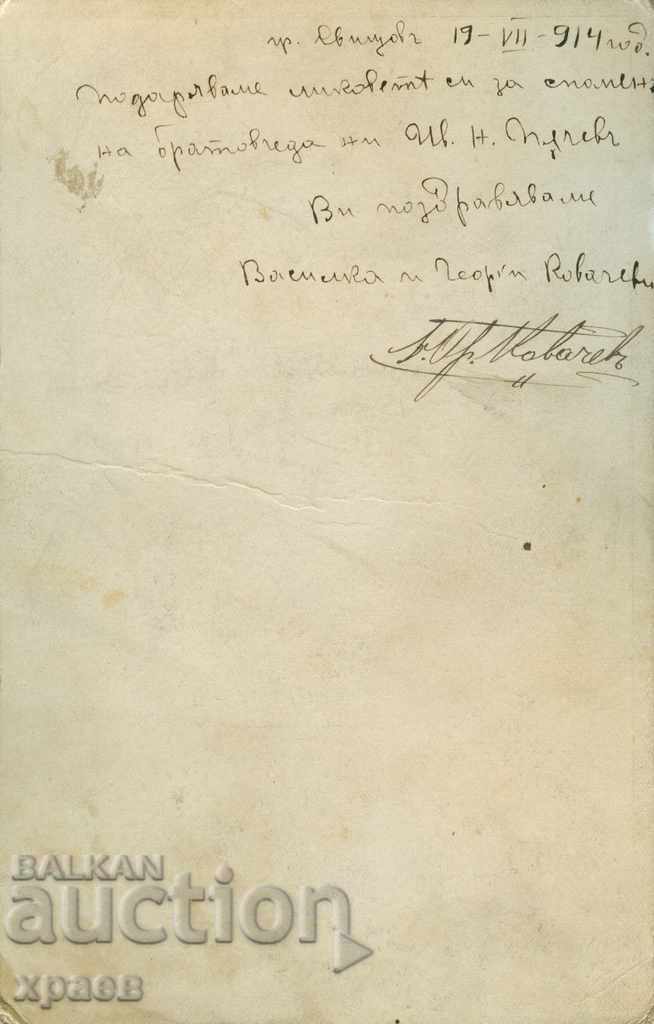 гр. Свищовъ 19-VII-914 год.
Подаряваме ликоветѣ си за споменъ
на братовчеда ни Ив. Н.
Ви поздравяваме
Василка и Георги Ковачеви
Г. Хр. Ковачевъ
BALKAN
auction
храев